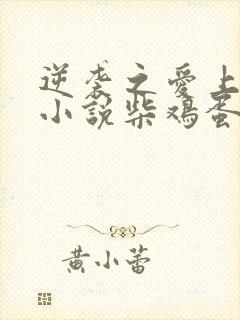 逆袭之愛上
小說柴鸡蛋
黄小蕾